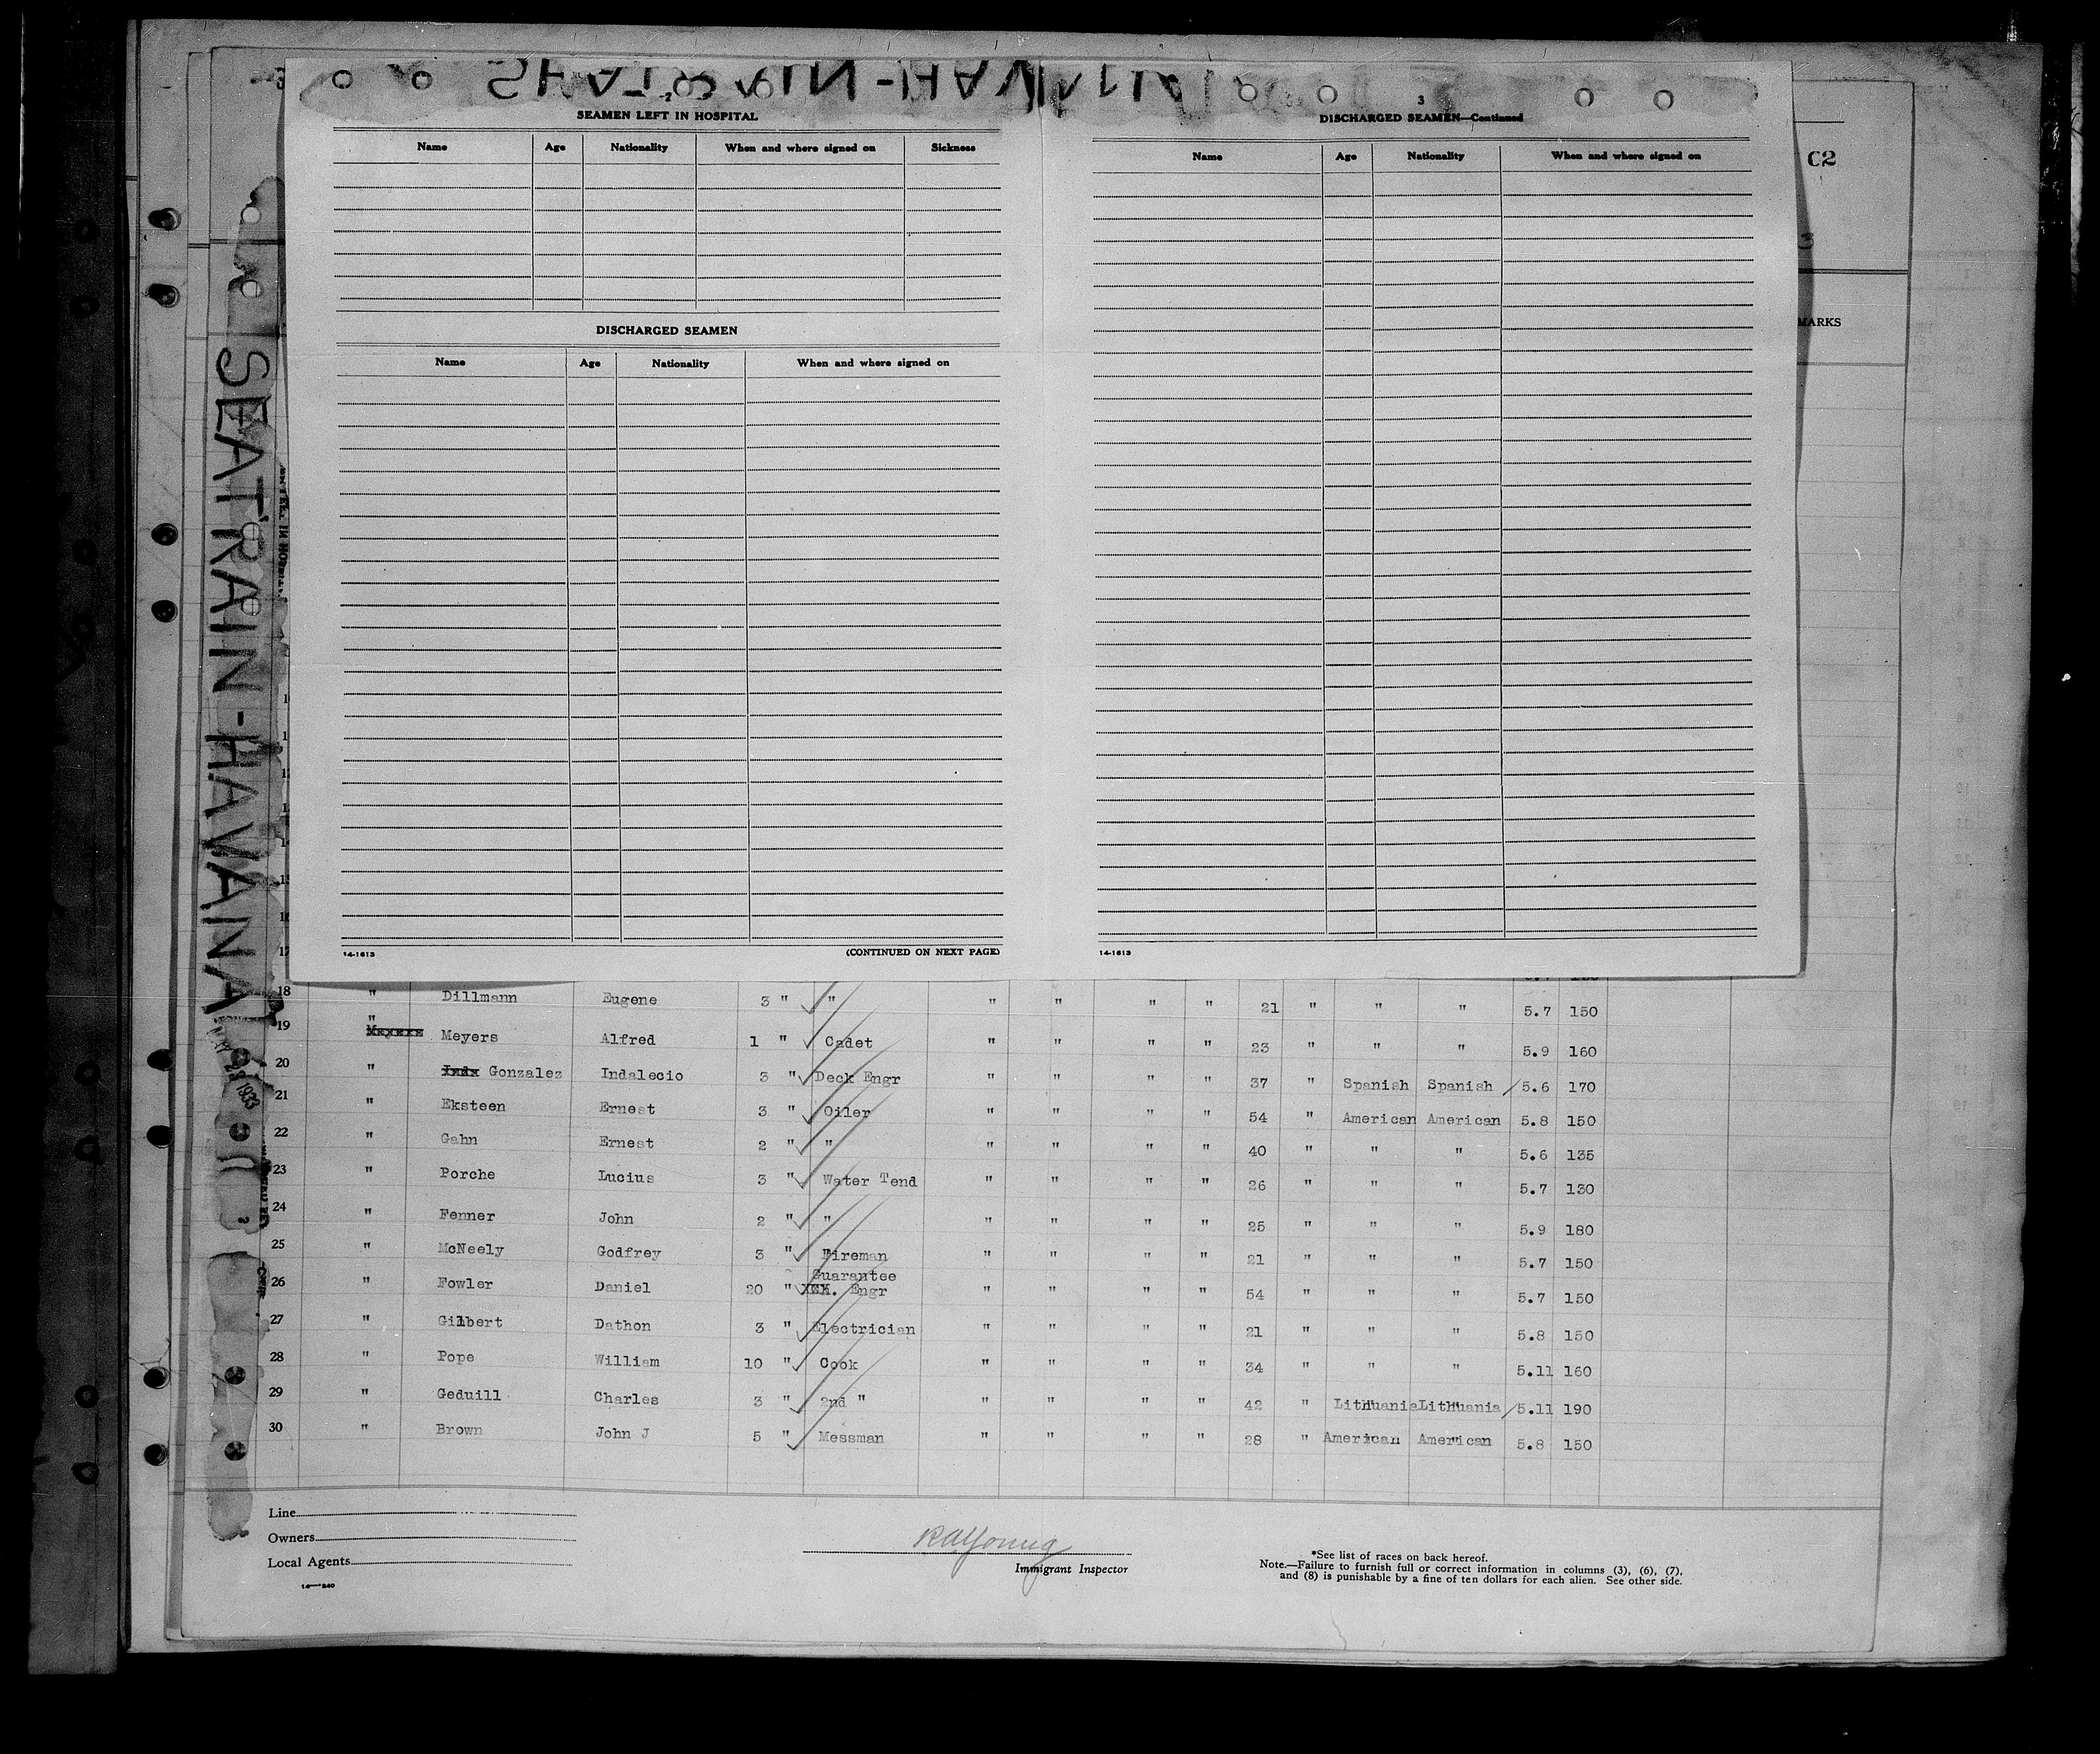 SEATRAIN-HAVANA
2
SEAMEN LEFT IN HOSPITAL
Name Age Nationality When and where signed on Sickness
DISCHARGED SEAMEN
Name Age Nationality When and where signed on
14-1613 (CONTINUED ON NEXT PAGE)
3
DISCHARGED SEAMEN—Continued
Name Age Nationality When and where signed on
14-1613
C2
MARKS
SEATRAIN-HAVANA
23 1933
17
18 " Dillmann Eugene 3 " " " " " " 21 " " " 5.7 150
19 " Meyers Alfred 1 " Cadet " " " " 23 " " " 5.9 160
20 " Gonzalez Indalecio 3 " Deck Engr " " " " 37 " Spanish Spanish 5.6 170
21 " Eksteen Ernest 3 " Oiler " " " " 54 " American American 5.8 150
22 " Gahn Ernest 2 " " " " " " 40 " " " 5.6 135
23 " Porche Lucius 3 " Water Tend " " " " 26 " " " 5.7 130
24 " Fenner John 2 " " " " " " 25 " " " 5.9 180
25 " McNeely Godfrey 3 " Fireman " " " " 21 " " " 5.7 150
26 " Fowler Daniel 20 " Guarantee Engr " " " " 54 " " " 5.7 150
27 " Gilbert Dathon 3 " Electrician " " " " 21 " " " 5.8 150
28 " Pope William 10 " Cook " " " " 34 " " " 5.11 160
29 " Geduill Charles 3 " 2nd " " " " " 42 " Lithuania Lithuania 5.11 190
30 " Brown John J 5 " Messman " " " " 28 " American American 5.8 150
Line
Owners
Local Agents
14—240
RAYoung
Immigrant Inspector
*See list of races on back hereof.
Note.—Failure to furnish full or correct information in columns (3), (6), (7),
and (8) is punishable by a fine of ten dollars for each alien. See other side.